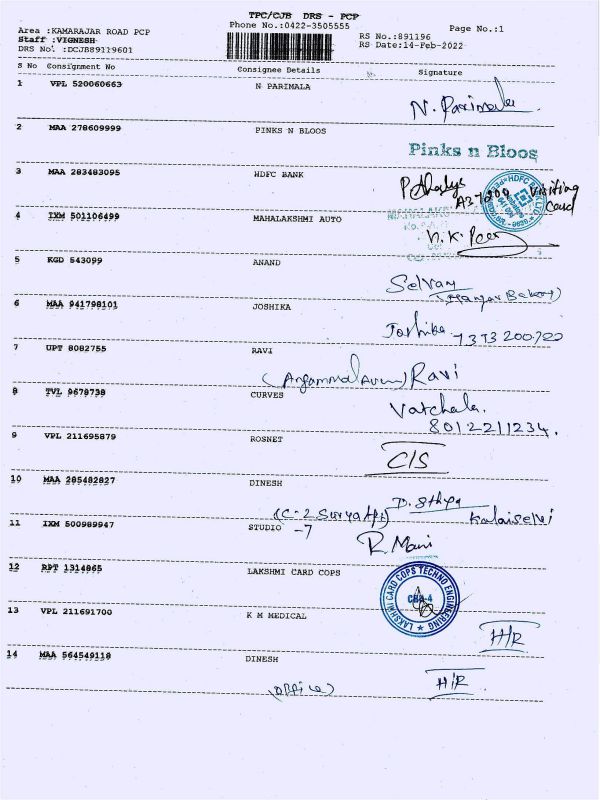 TPC/CJB DRS - PCP
Phone No.:0422-3505555
Page No.:1
Area :KAMARAJAR ROAD PCP
Staff :VIGNESH
DRS No. :DCJB89119601
RS No.:891196
RS Date:14-Feb-2022
S No Consignment No Consignee Details Signature
1 VPL 520060663 N PARIMALA
N. Parimala
2 MAA 278609999 PINKS N BLOOS
Pinks n Bloos
3 MAA 283483095 HDFC BANK
A37209 Visiting Card
4 IXM 501106499 MAHALAKSHMI AUTO
5 KGD 543099 ANAND
Selvam
6 MAA 941798101 JOSHIKA
Joshika
7 UPT 8082755 RAVI
Ravi
8 TVL 9678738 CURVES
Vatchala.
8012211234.
9 VPL 211695879 ROSNET
C/S
10 MAA 285482827 DINESH
Kalaiselvi
11 IXM 500989947 STUDIO -7
R. Mani
12 RPT 1314865 LAKSHMI CARD COPS
LAKSHMI CARD COPS TECHNO ENGINEERING
CBE-4
13 VPL 211691700 K M MEDICAL
H/R
14 MAA 564549118 DINESH
(office)
H/R